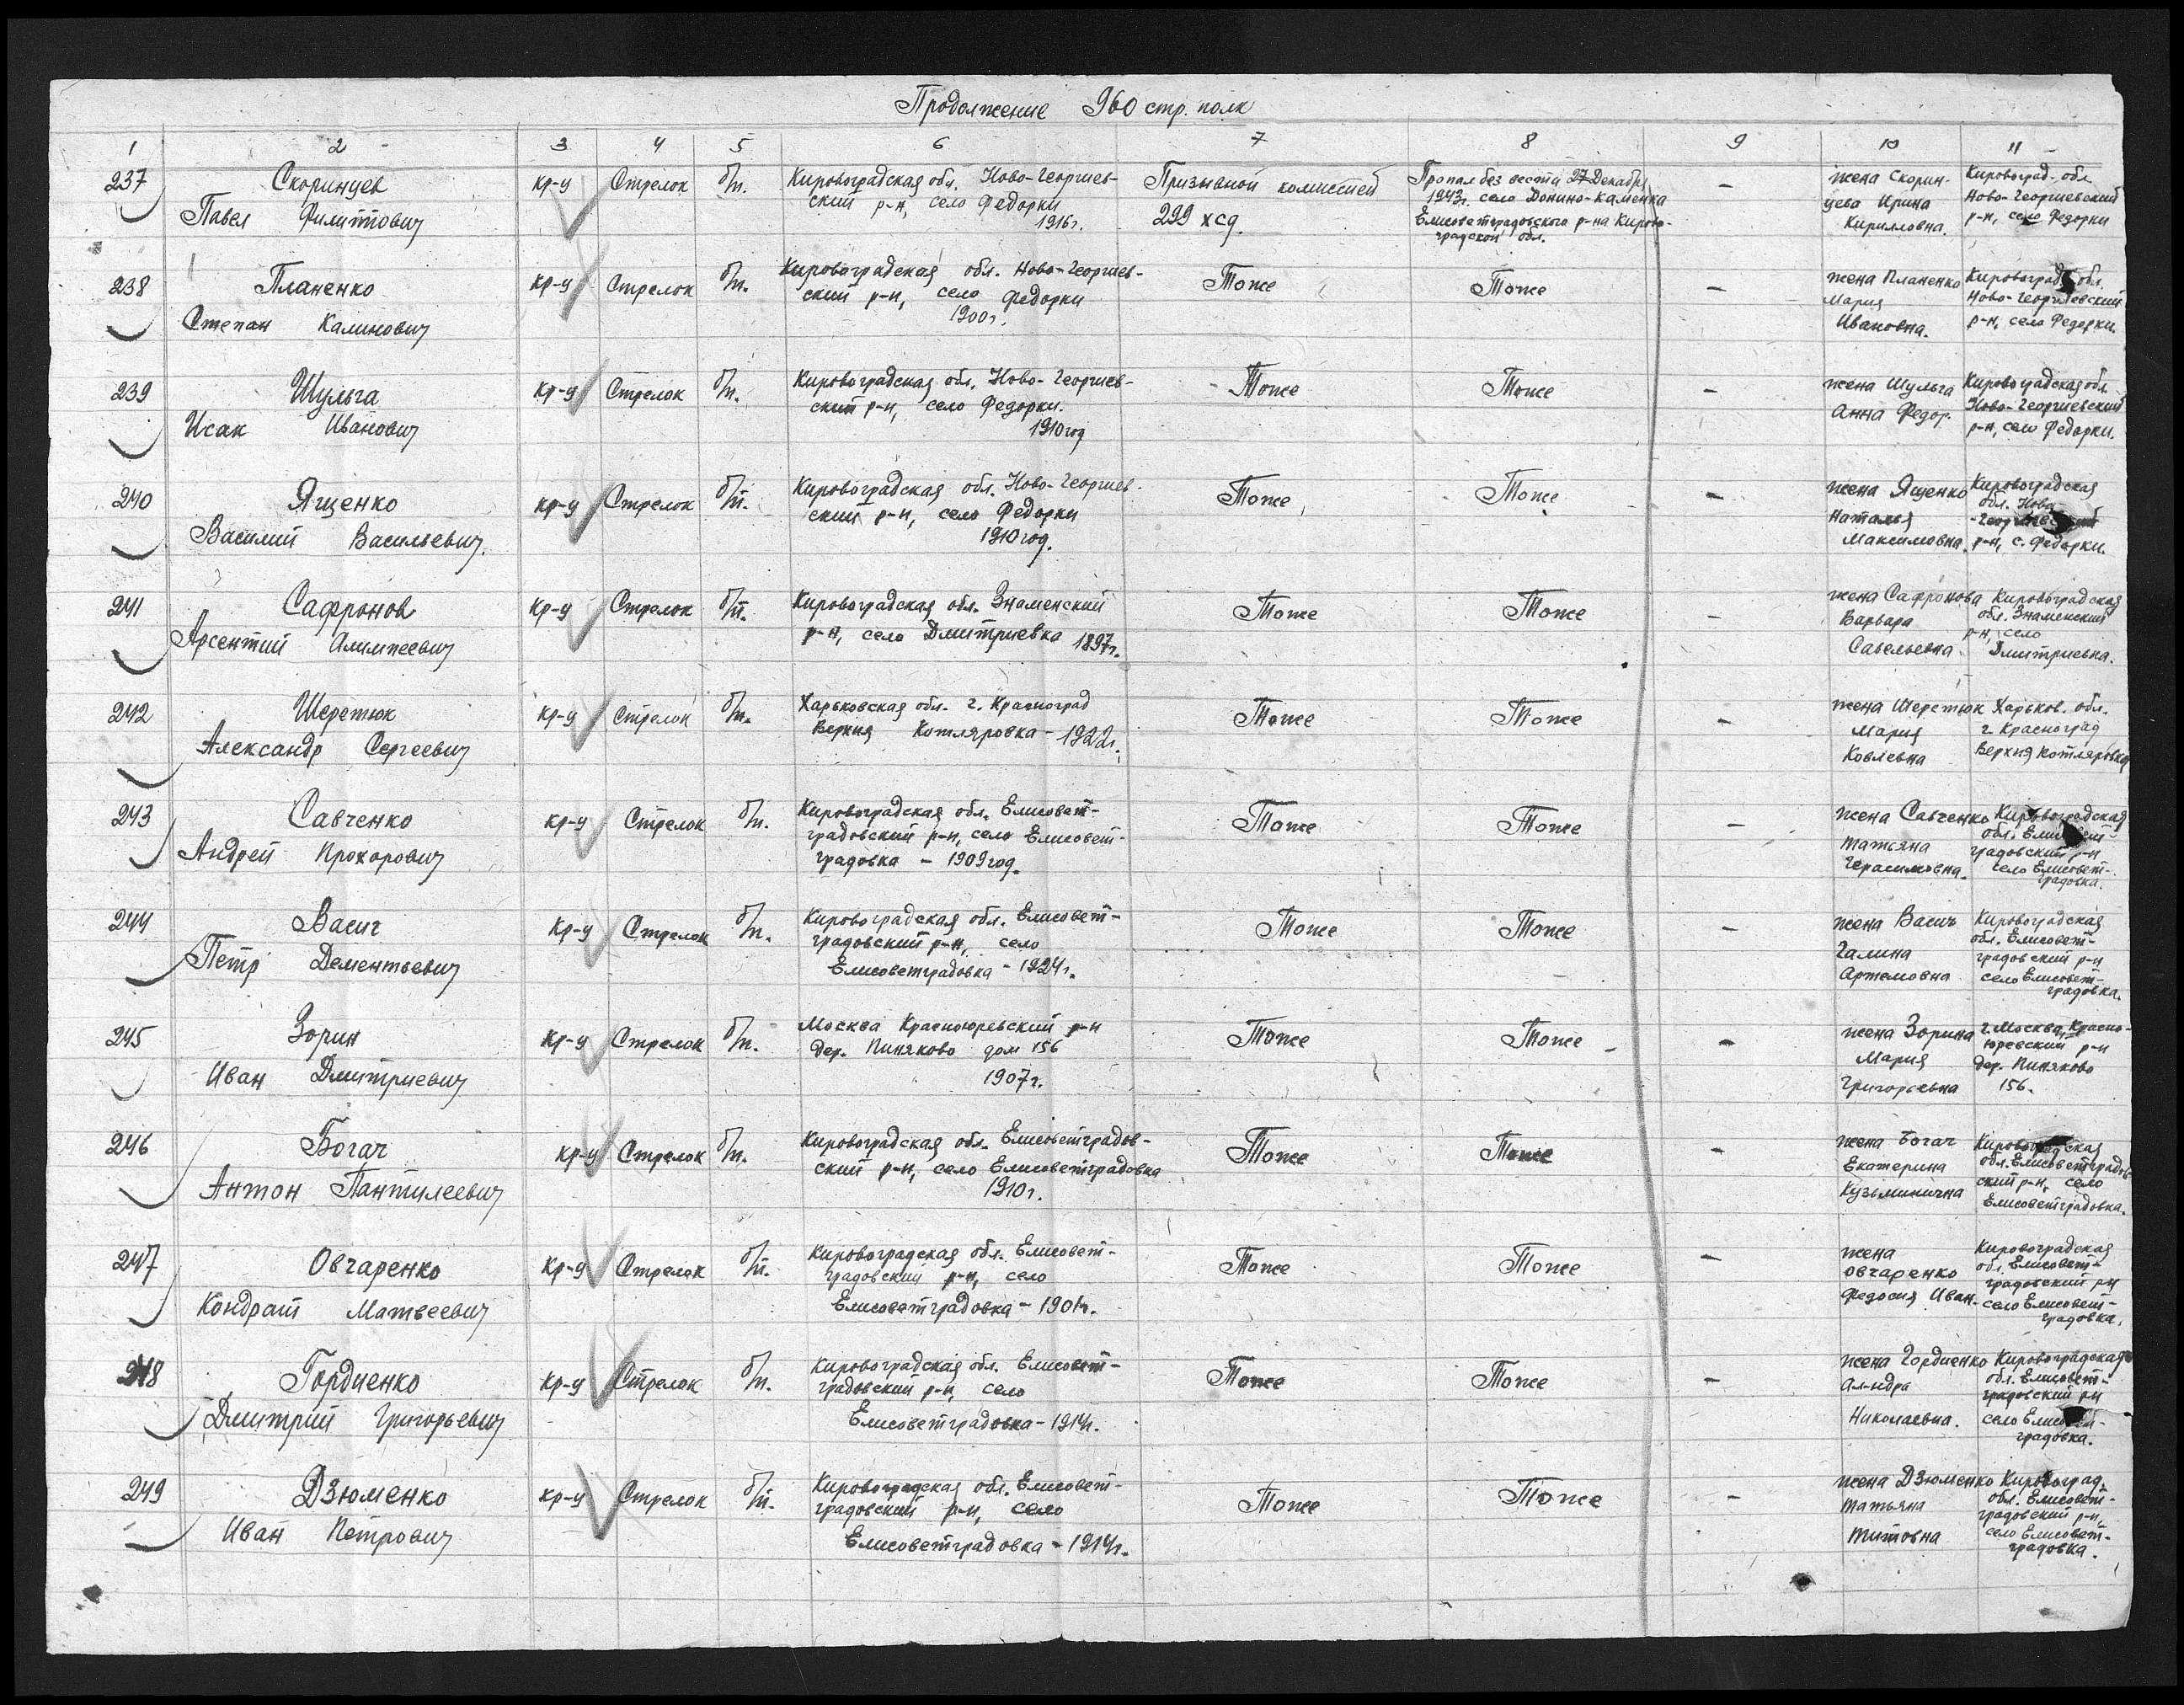 Продолжение 960 стр. полк
1 2 3 4 5 6 7 8 9 10 11
237 Скоринцев Павел Филиппович
кр-ц Стрелок б/п.
Кировоградская обл. Ново-Георгиев-
ский р-н, село Федорки
1916г.
Призывной комиссией
299 хсд.
Пропал без вести 27 Декабря
1943г. село Донино-Каменка
Елисоветградовского р-на Кирово-
градской обл.
-
жена Скорин-
цева Ирина
Кирилловна.
Кировоград. обл.
Ново-Георгиевский
р-н, село Федорки
238 Планенко
Степан Калинович
кр-ц Стрелок б/п.
Кировоградская обл. Ново-Георгиев-
ский р-н, село Федорки
1900г.
Тоже Тоже -
жена Планенко
Мария
Ивановна.
Кировоград. обл.
Ново-Георгиевский
р-н, село Федорки.
239 Шульга
Исак Иванович
кр-ц Стрелок б/п.
Кировоградская обл. Ново-Георгиев-
ский р-н, село Федорки.
1910год
Тоже Тоже -
жена Шульга
Анна Федор.
Кировоградская обл.
Ново-Георгиевский
р-н, село Федорки.
240 Ященко
Василий Васильевич.
кр-ц Стрелок б/п.
Кировоградская обл. Ново-Георгиев-
ский р-н, село Федорки
1910год.
Тоже Тоже -
жена Ященко
Наталья
Максимовна.
Кировоградская
обл. Ново
-Георгиевский
р-н, с. Федорки.
241 Сафронов
Арсентий Алимпеевич
кр-ц Стрелок б/п.
Кировоградская обл. Знаменский
р-н, село Дмитриевка 1897г.
Тоже Тоже -
жена Сафронова
Варвара
Савельевна
Кировоградская
обл. Знаменский
р-н, село
Дмитриевка.
242 Шеретюк
Александр Сергеевич
кр-ц Стрелок б/п.
Харьковская обл. г. Красноград
Верхня Котляровка - 1922г.
Тоже Тоже -
жена Шеретюк
Мария
Ковлевна
Харьков. обл.
г. Красноград
Верхня Котляровка
243 Савченко
Андрей Прохорович
кр-ц Стрелок б/п.
Кировоградская обл. Елисовет-
градовский р-н, село Елисовет-
градовка - 1909год.
Тоже Тоже -
жена Савченко
Татьяна
Герасимовна.
Кировоградская
обл. Елисовет-
градовский р-н
село Елисовет-
градовка.
244 Васич
Петр Дементьевич
кр-ц Стрелок б/п.
Кировоградская обл. Елисовет-
градовский р-н, село
Елисоветградовка - 1924г.
Тоже Тоже -
жена Васич
Галина
Артемовна
Кировоградская
обл. Елисовет-
градовский р-н
село Елисовет-
градовка.
245 Зорин
Иван Дмитриевич
кр-ц Стрелок б/п.
Москва Красноюревский р-н
дер. Пиняково дом 156
1907г.
Тоже Тоже -
жена Зорина
Мария
Григорьевна
г. Москва, Красно-
юревский р-н
дер. Пиняково
156.
246 Богач
Антон Пантилеевич
кр-ц Стрелок б/п.
Кировоградская обл. Елисоветградов-
ский р-н, село Елисоветградовка
1910г.
Тоже Тоже -
жена Богач
Екатерина
Кузьминична
Кировоградская
обл. Елисоветградов-
ский р-н, село
Елисоветградовка.
247 Овчаренко
Кондрат Матвеевич
кр-ц Стрелок б/п.
Кировоградская обл. Елисовет-
градовский р-н, село
Елисоветградовка - 1901г.
Тоже Тоже -
жена
Овчаренко
Федосия Иван.
Кировоградская
обл. Елисовет-
градовский р-н
село Елисовет-
градовка.
248 Гордиенко
Дмитрий Григорьевич
кр-ц Стрелок б/п.
Кировоградская обл. Елисовет-
градовский р-н, село
Елисоветградовка - 1914г.
Тоже Тоже -
жена Гордиенко
Ал-ндра
Николаевна.
Кировоградская
обл. Елисовет-
градовский р-н
село Елисовет-
градовка.
249 Дзюменко
Иван Петрович
кр-ц Стрелок б/п.
Кировоградская обл. Елисовет-
градовский р-н, село
Елисоветградовка - 1914г.
Тоже Тоже -
жена Дзюменко
Татьяна
Титовна
Кировоград.
обл. Елисовет-
градовский р-н,
село Елисовет-
градовка.